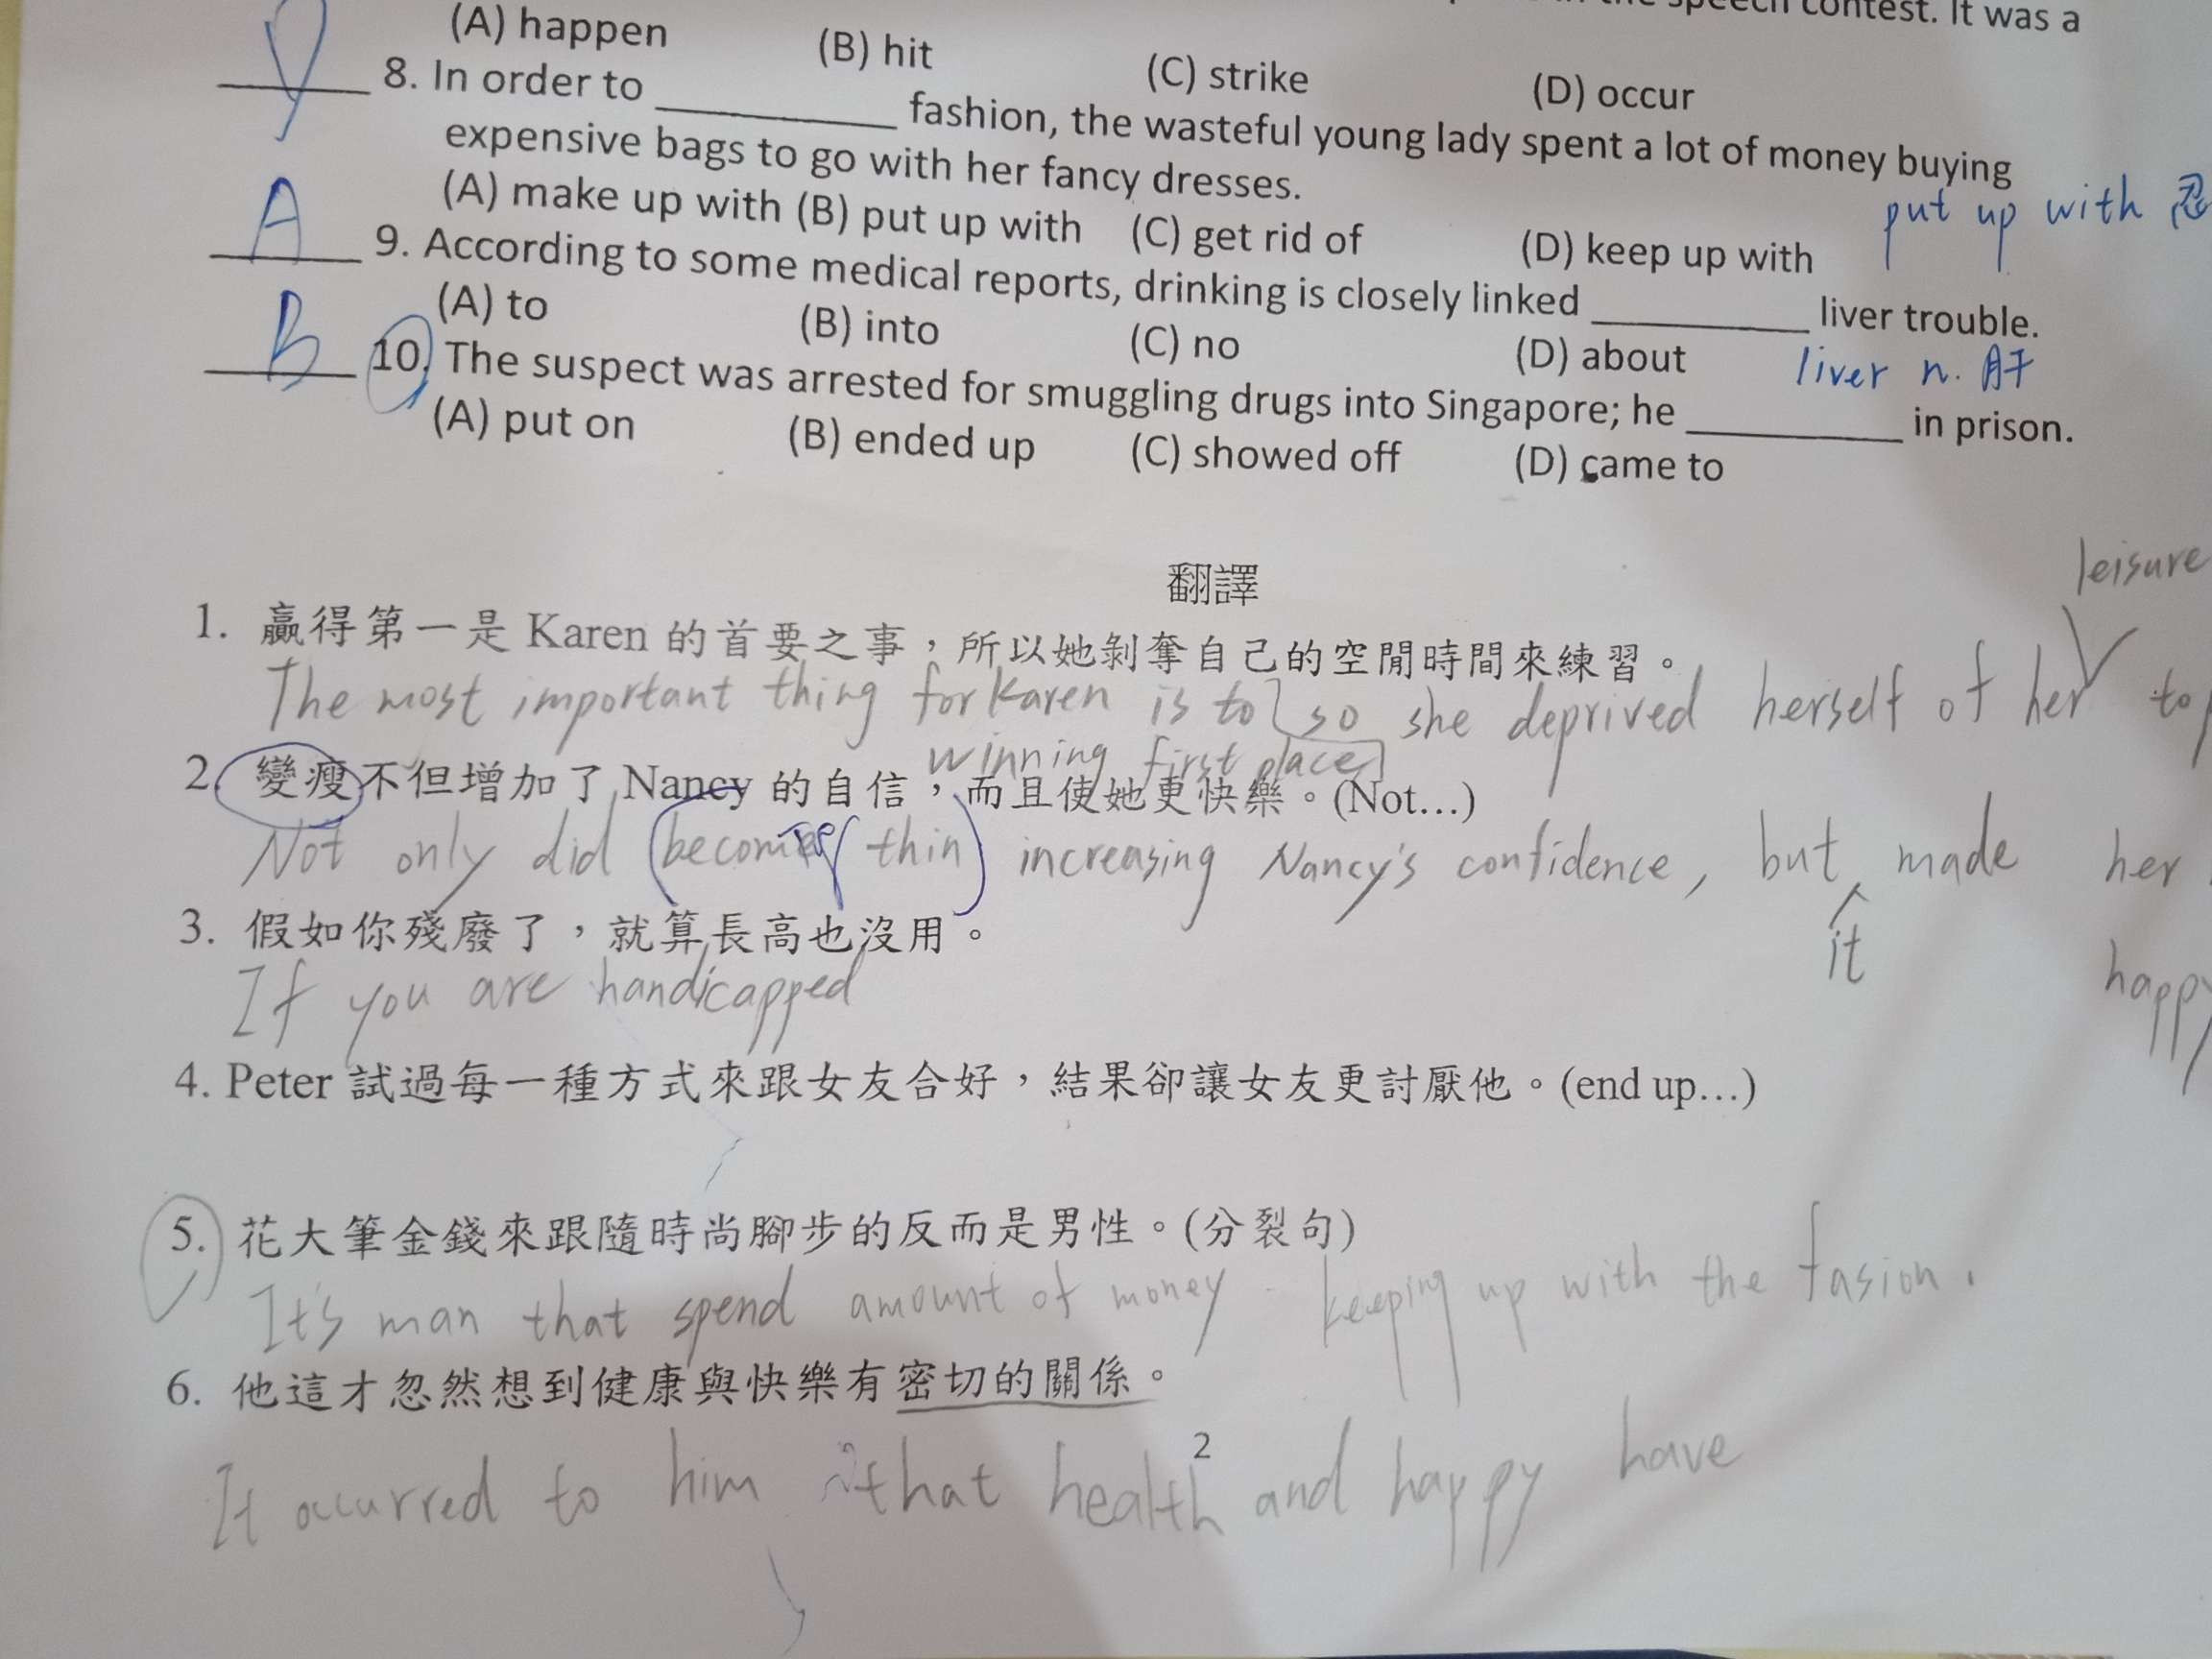 speech contest. It was a
(A) happen (B) hit (C) strike (D) occur
8. In order to __________ fashion, the wasteful young lady spent a lot of money buying
expensive bags to go with her fancy dresses.
(A) make up with (B) put up with (C) get rid of (D) keep up with
put up with 忍
A 9. According to some medical reports, drinking is closely linked __________ liver trouble.
(A) to (B) into (C) no (D) about
liver n. 肝
B 10. The suspect was arrested for smuggling drugs into Singapore; he __________ in prison.
(A) put on (B) ended up (C) showed off (D) came to
翻譯
leisure
1. 贏得第一是 Karen 的首要之事，所以她剝奪自己的空閒時間來練習。
The most important thing for Karen is to so she deprived herself of her to
winning first place
2. 變瘦不但增加了 Nancy 的自信，而且使她更快樂。(Not…)
Not only did thin increasing Nancy's confidence, but made her
it
happy
3. 假如你殘廢了，就算長高也沒用。
If you are handicapped
4. Peter 試過每一種方式來跟女友合好，結果卻讓女友更討厭他。(end up…)
5. 花大筆金錢來跟隨時尚腳步的反而是男性。(分裂句)
It's man that spend amount of money keeping up with the fasion.
6. 他這才忽然想到健康與快樂有密切的關係。
2
It occurred to him that health and happy have